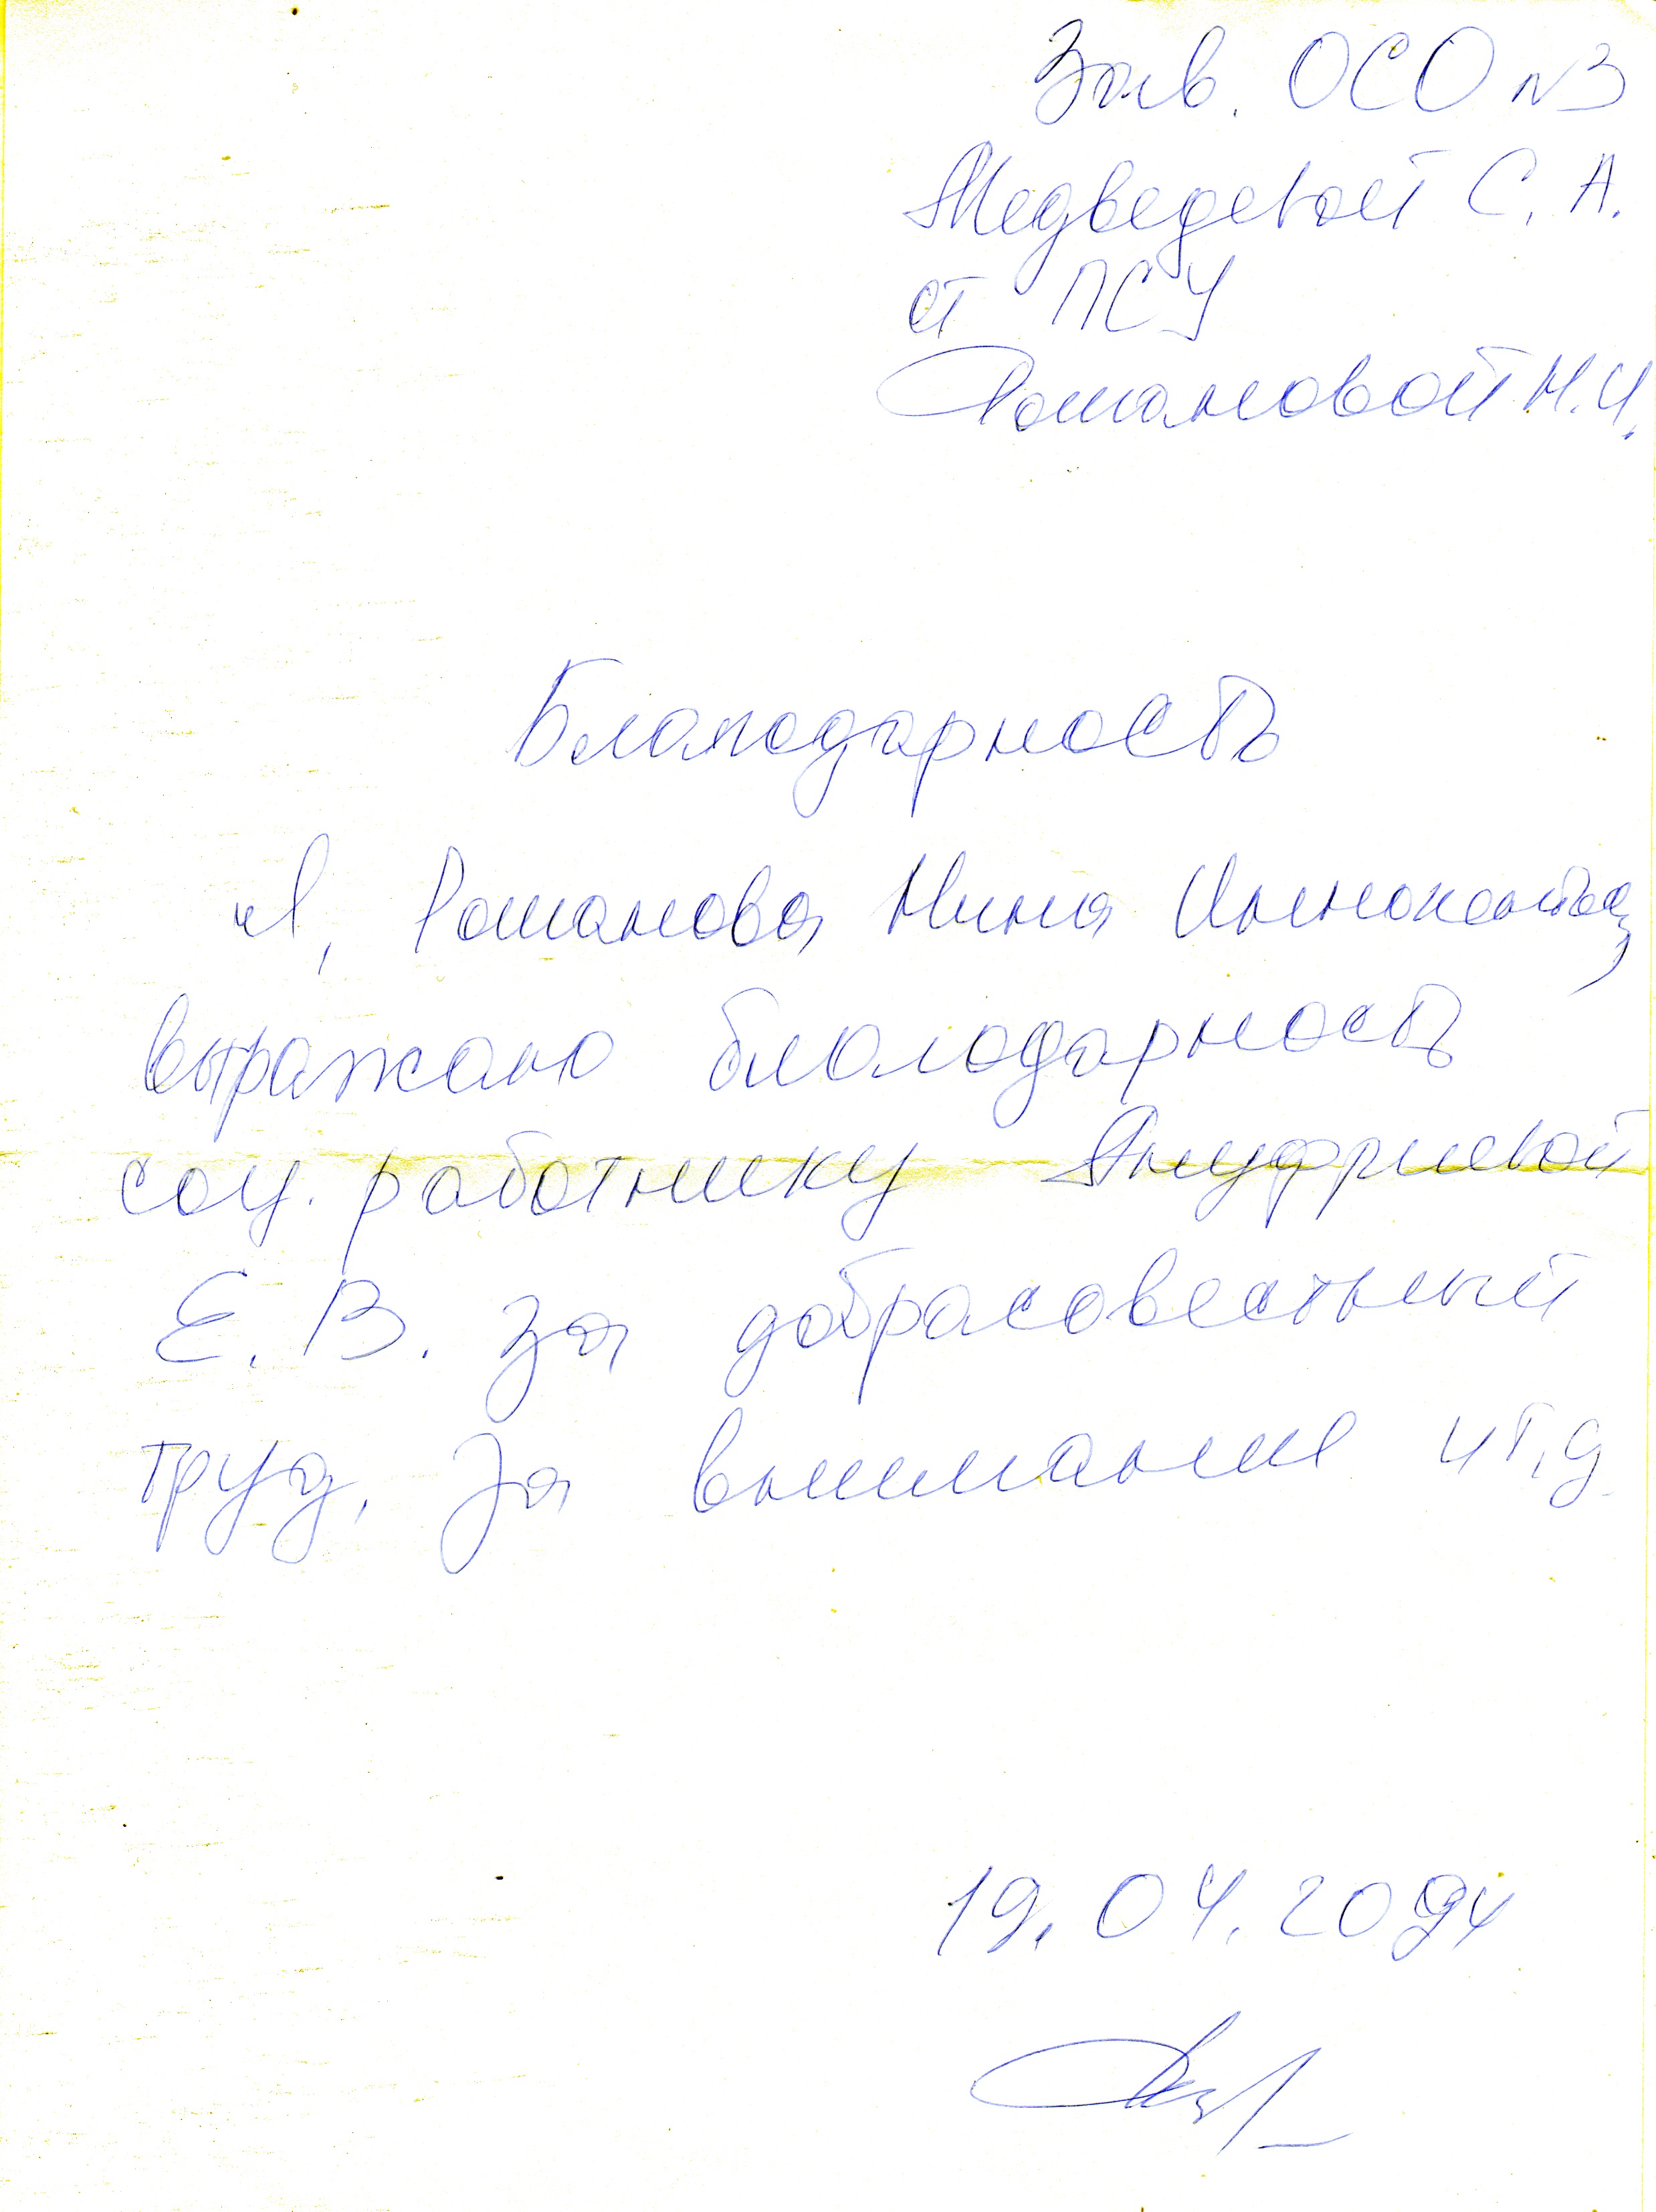 Зав. ОСО №3
Медведевой С. А.
от ПСУ
Романовой Н.И.
Благодарность
Я, Романова Нина Иннокентьев
выражаю благодарность
соц. работнику Ануфриевой
Е. В. за добрасовестный
труд, за внимание и т,д
19.04.2024